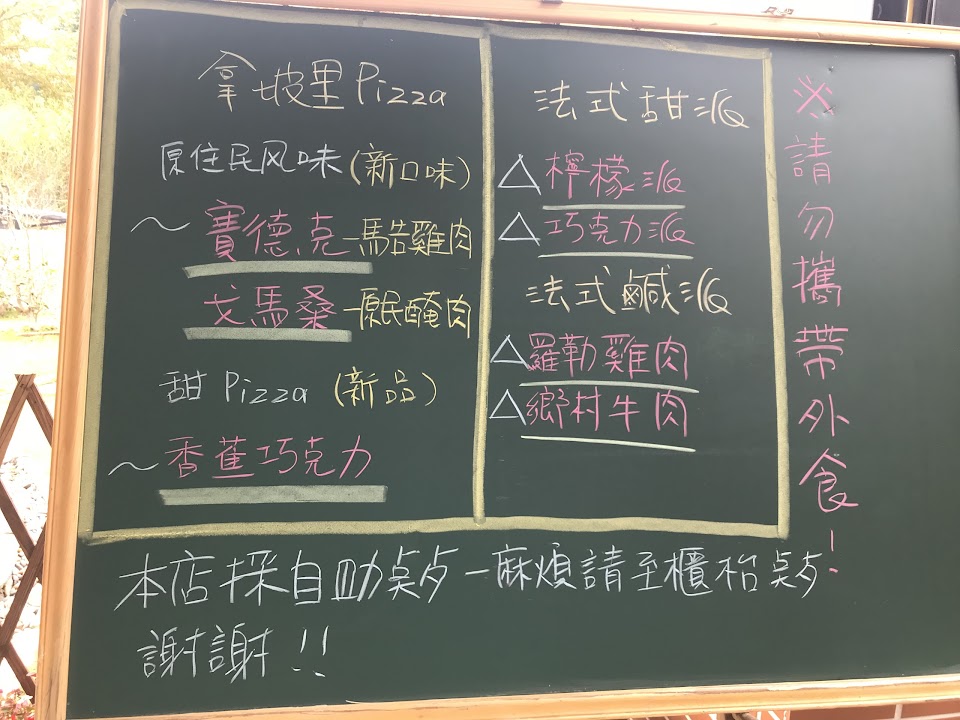 拿坡里Pizza
原住民风味(新口味)
～賽德克－馬告雞肉
戈馬桑－原民醃肉
甜 Pizza (新品)
～香蕉巧克力
法式甜派
△檸檬派
△巧克力派
法式鹹派
△羅勒雞肉
△鄉村牛肉
※請勿攜帶外食!
本店採自助點歺－麻煩請至櫃枱點歺
謝謝!!